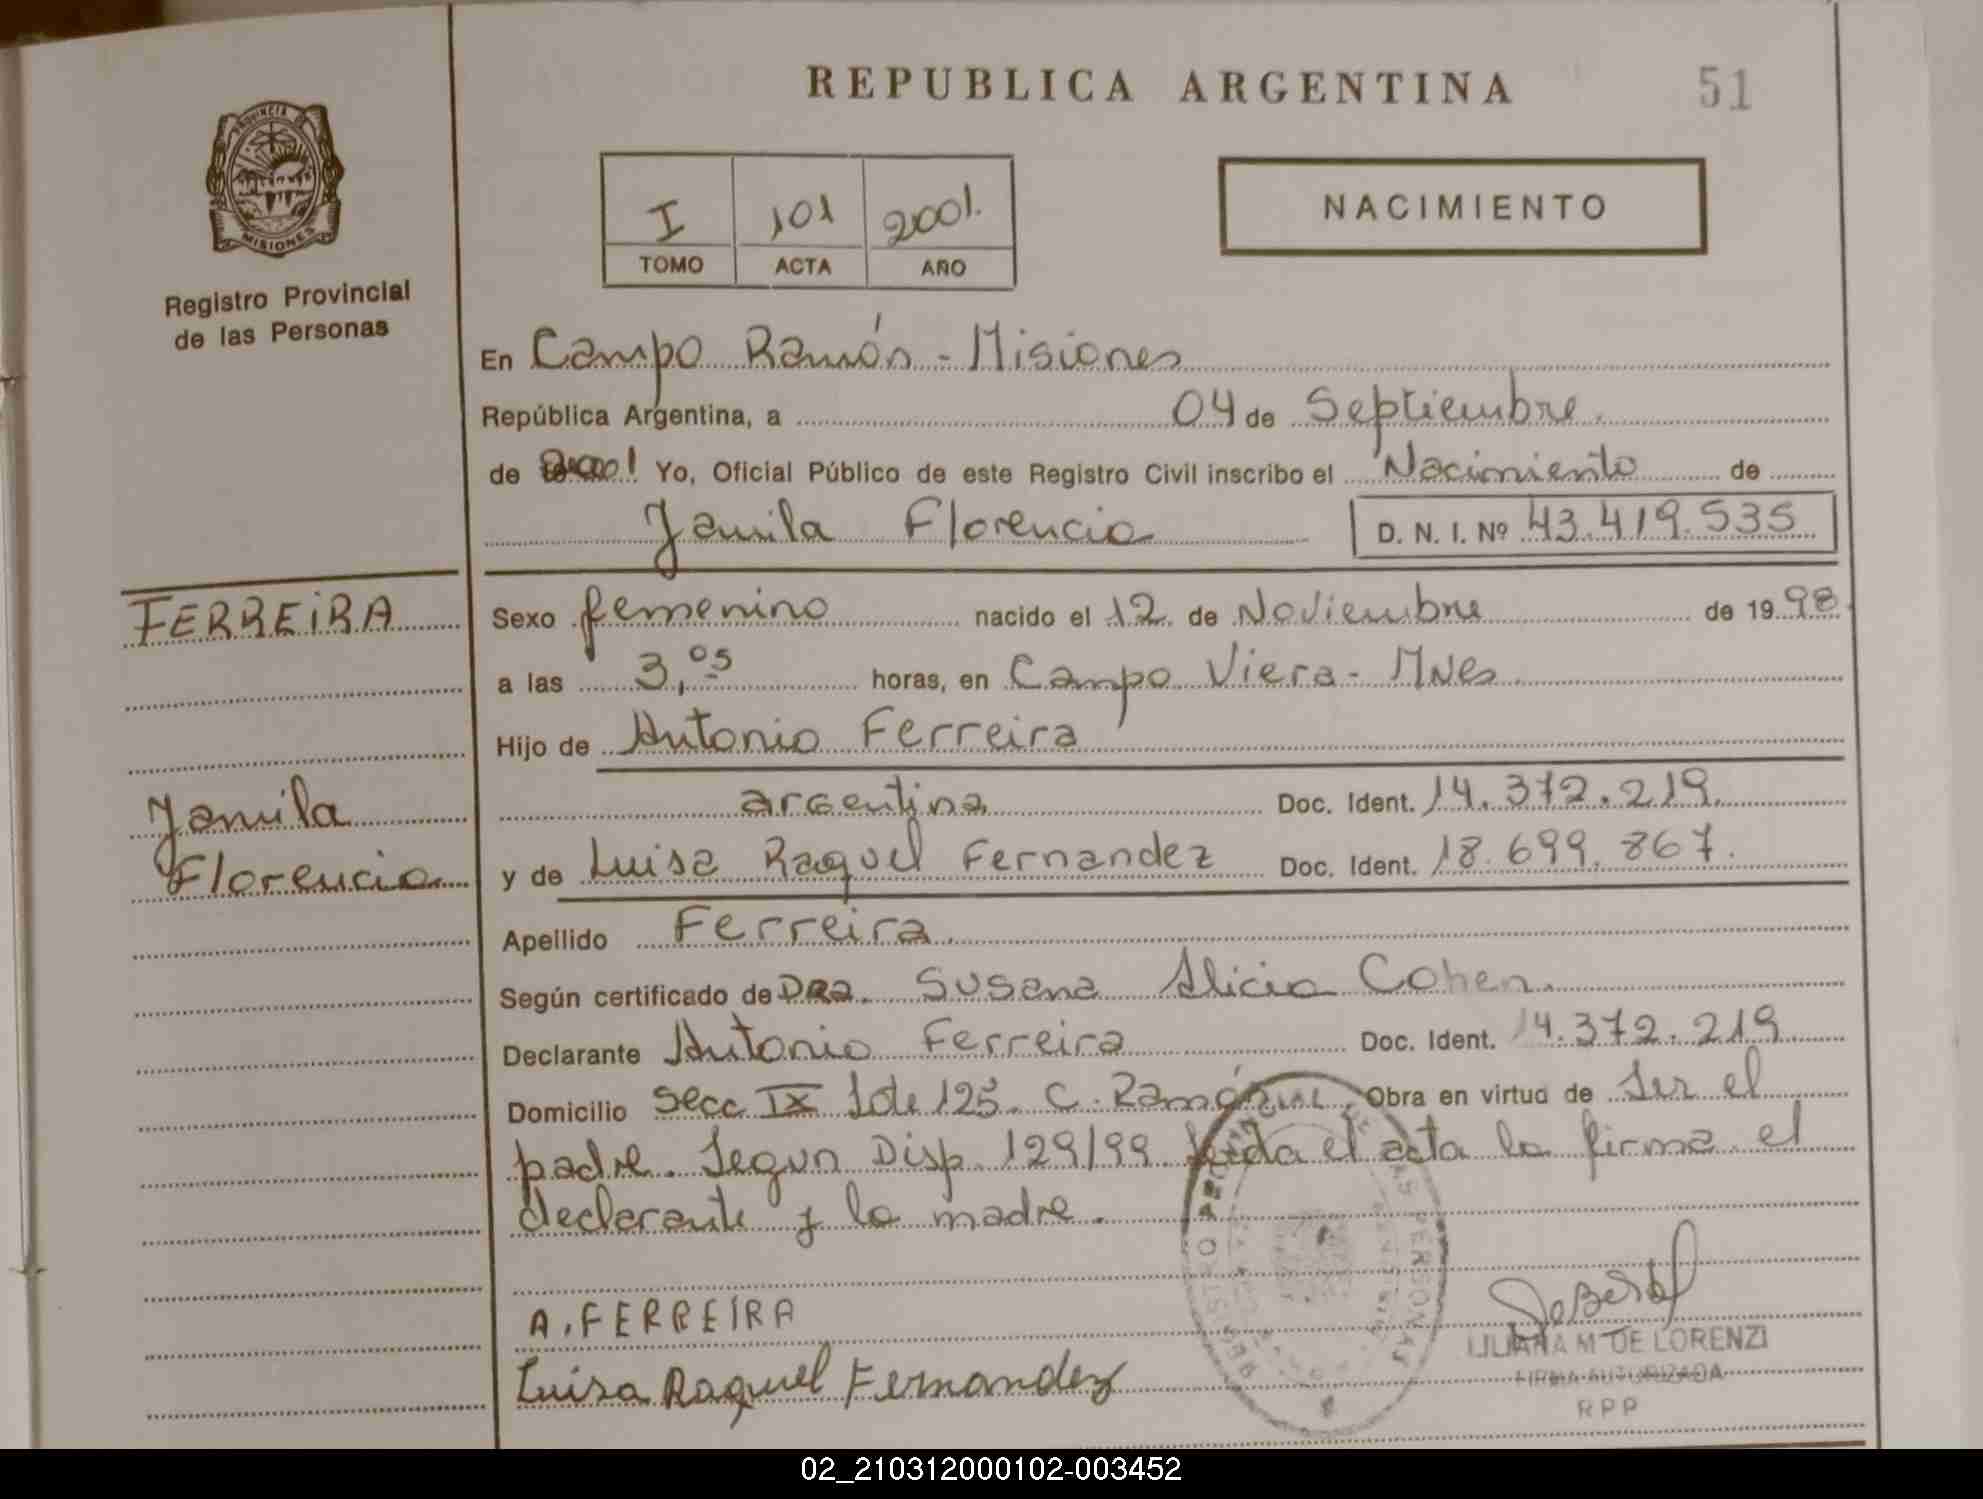 REPUBLICA ARGENTINA
51
PROVINCIA DE
MISIONES
Registro Provincial
de las Personas
I 101 2001.
TOMO ACTA AÑO
NACIMIENTO
En Campo Ramón - Misiones
República Argentina, a 04 de Septiembre.
de 2001 Yo, Oficial Público de este Registro Civil inscribo el Nacimiento de
Jamila Florencia D. N. I. Nº 43.419.535
FERREIRA
Jamila
Florencia
Sexo femenino nacido el 12 de Noviembre de 1998.
a las 3,05 horas, en Campo Viera - Mnes
Hijo de Antonio Ferreira
argentina Doc. Ident. 14.372.219.
y de Luisa Raquel Fernandez Doc. Ident. 18.699.867.
Apellido Ferreira.
Según certificado de Dra. Susana Alicia Cohen.
Declarante Antonio Ferreira Doc. Ident. 14.372.219
Domicilio Secc IX lote 125. C. Ramón Obra en virtud de Ser el
padre. Segun Disp. 129/99 leida el acta la firma el
declarante y la madre.
A. FERREIRA
Luisa Raquel Fernandez
REGISTRO PROVINCIAL DE LAS PERSONAS
LILIANA M DE LORENZI
FIRMA AUTORIZADA
RPP
02_210312000102-003452